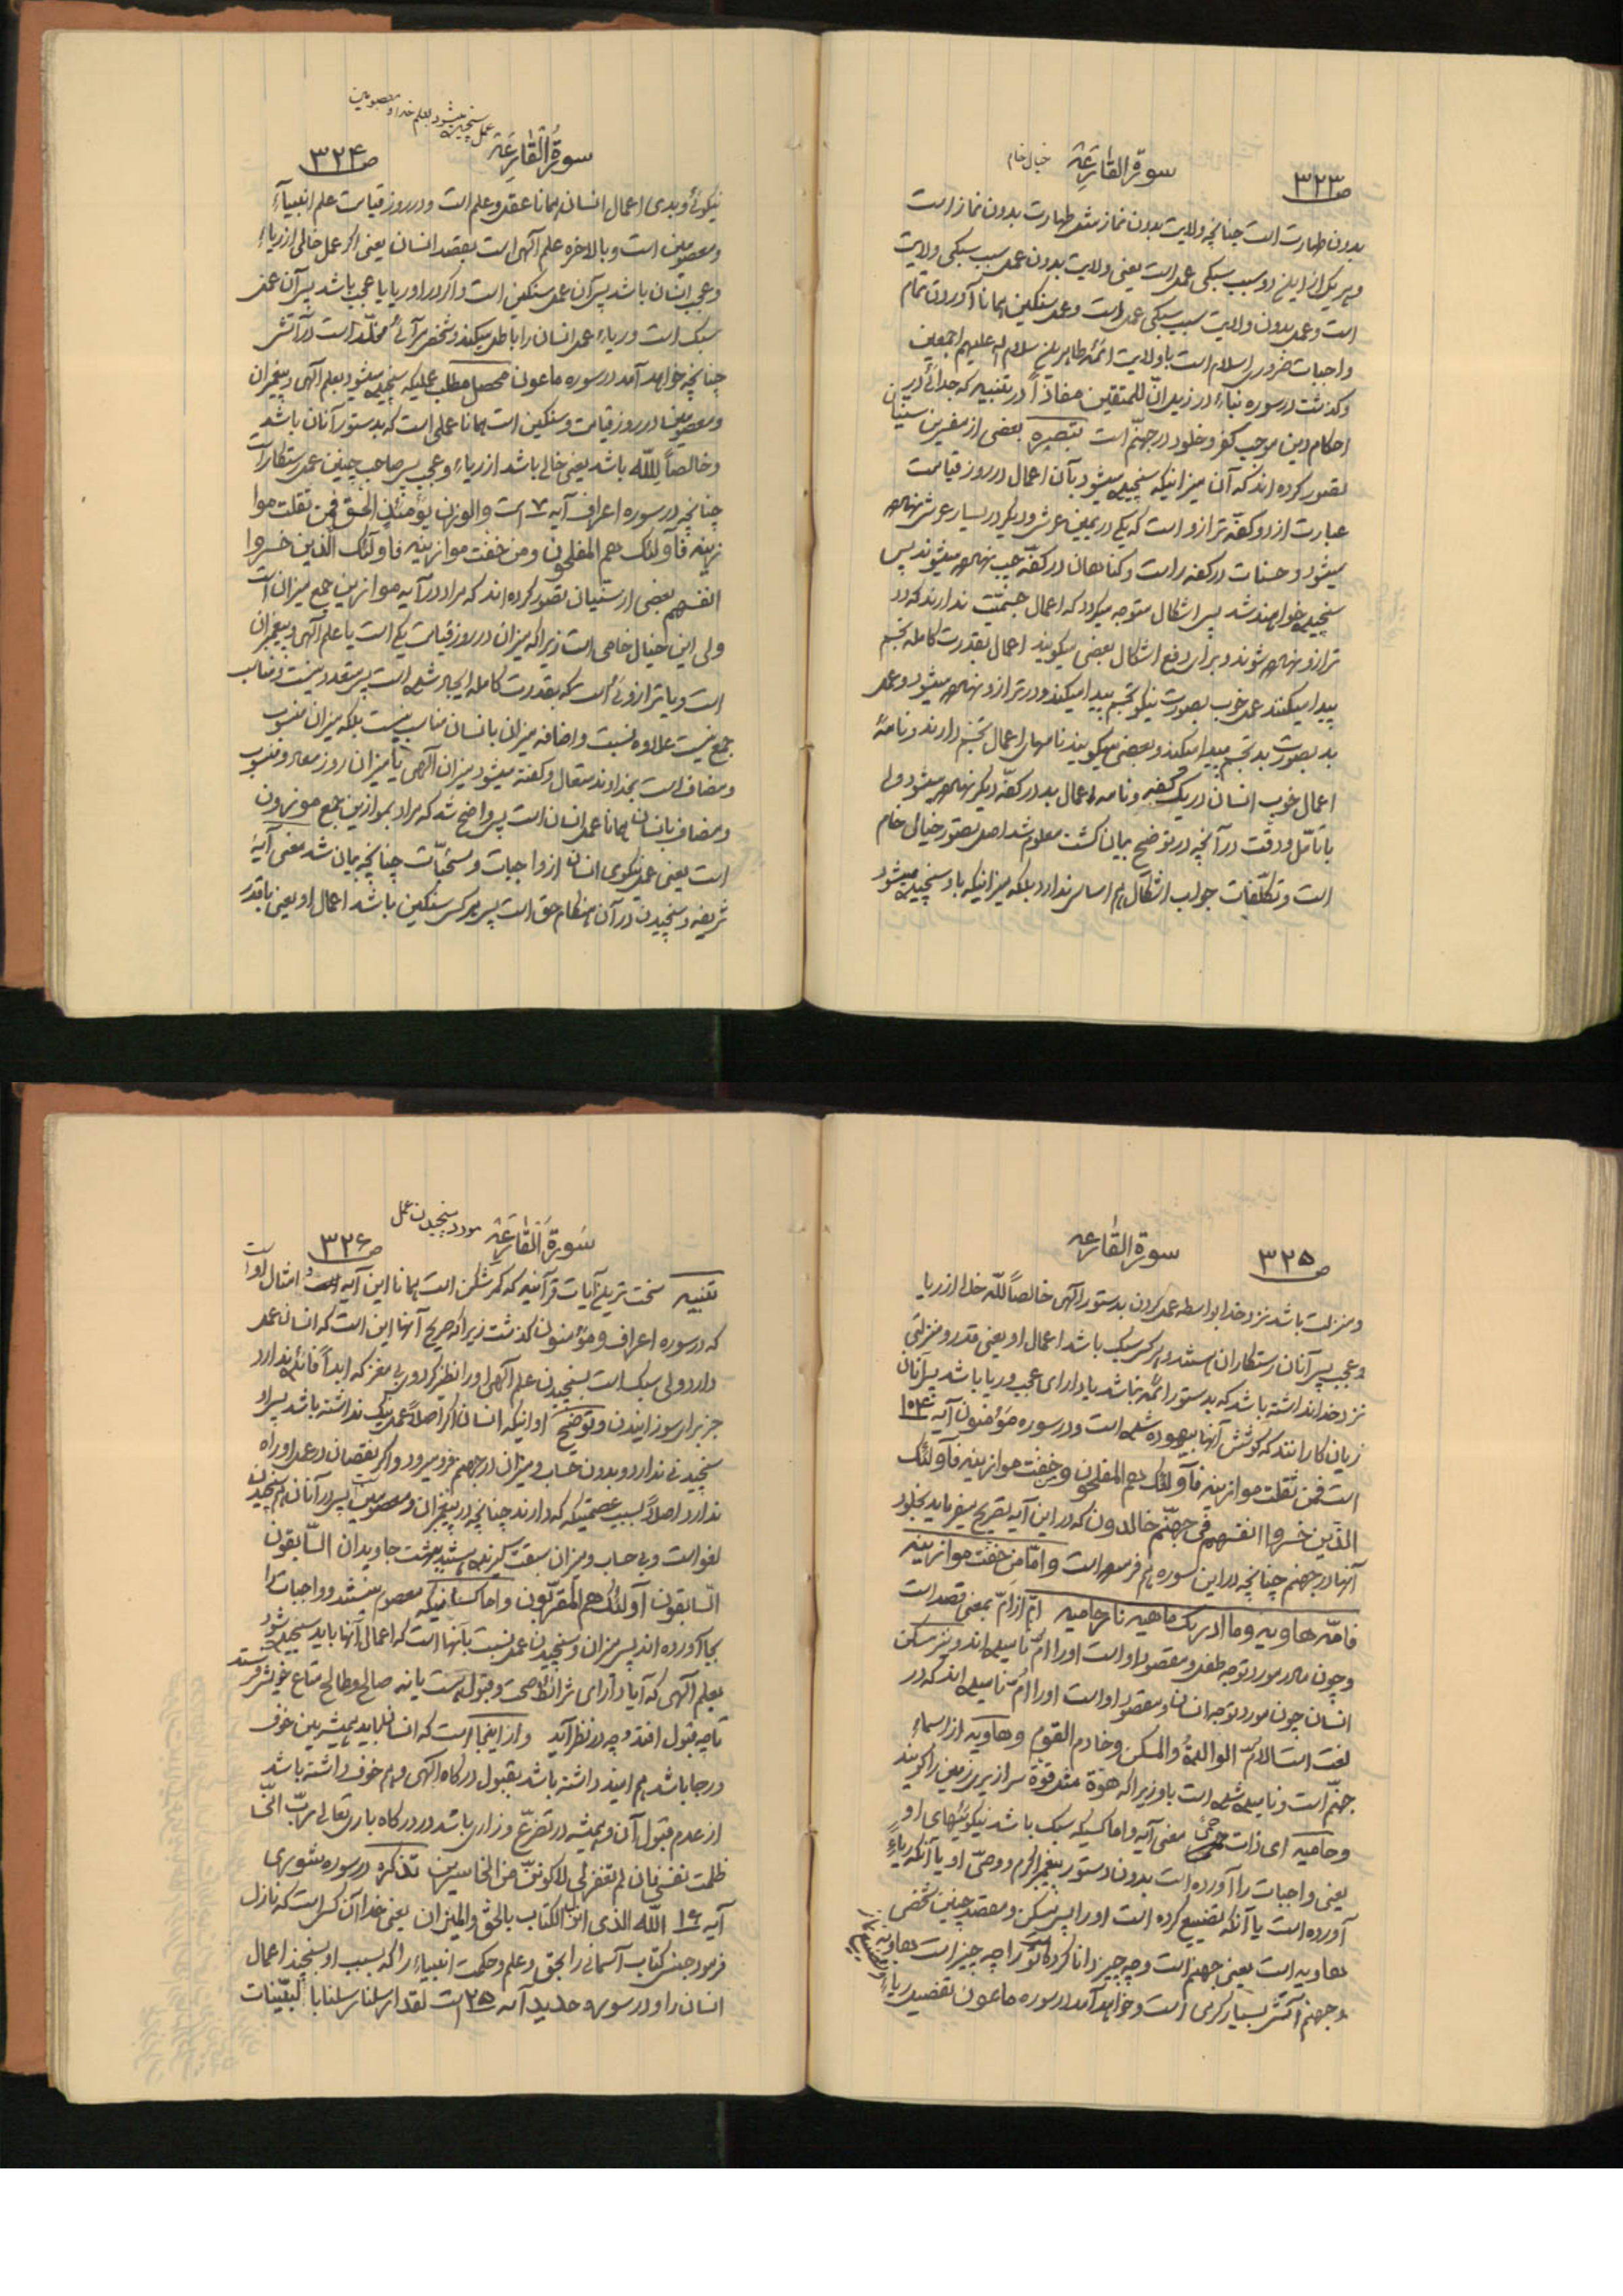 ص۳۲۳
سورة القارعة
خیال خام
بدون طهارت است چنانچه ولایت بدون نماز مثل طهارت بدون نماز است
و هر یک از این دو سبب سبکی عمل است یعنی ولایت بدون عمل سبب سبکی ولایت
است و عمل بدون ولایت سبب سبکی عمل است و عمل سنکین همانا آوردن تمام
واجبات ضروری اسلام است با ولایت ائمّه طاهرین سلام الله علیهم اجمعین
و کذشت در سوره نباء در زیر انّ للمتقین مفازاً در تنبیه که جدائی در
احکام دین موجب کفر و خلود در جهنّم است تبصره بعضی از مفسرین سنیان
تصور کرده اند که آن میزانیکه سنجیده میشود بآن اعمال در روز قیامت
عبارت از دو کفّه ترازو است که یکی در یمین عرش و دیکر در یسار عرش نهاده
میشود و حسنات در کفه راست و کناهان در کفّه چپ نهاده میشوند پس
سنجیده خواهند شد پس اشکال متوجه میکردد که اعمال جسمیّت ندارند که در
ترازو نهاده شوند و برای دفع اشکال بعضی میکویند اعمال بقدرت کامله تجسّم
پیدا میکنند عمل خوب بصورت نیکو تجسّم پیدا میکند و در ترازو نهاده میشود و عمل
بد بصورت بد تجسّم پیدا میکند و بعضی میکویند نامهای اعمال تجسّم دارند و نامهٔ
اعمال خوب انسان در یک کفّه و نامه اعمال بد در کفّه دیکر نهاده میشود ولی
با تأمّل و دقّت در آنچه در توضیح بیان کشت معلوم شد اصل تصور خیالی خام
است و تکلّفات جواب اشکال هم اساس ندارد بلکه میزانیکه باو سنجیده میشود
عمل سنجیده میشود بعلم خدا و معصومین
سورة القارعة
ص۳۲۴
نیکوئی و بدی اعمال انسان همانا عقل و علم است و در روز قیامت علم انبیاء
و معصومین است و بالاخره علم آلهی است بقصد انسان یعنی اکر عمل خالی از ریاء
و عجب انسان باشد پس آن عمل سنکین است و اکر در او ریا یا عجب باشد پس آن عمل
سبک است و ریاء عمل انسان را باطل میکند و شخص مرآئی مخلّد است در آتش
چنانچه خواهد آمد در سوره ماعون محصل مطلب عملیکه سنجیده میشود بعلم آلهی و پیغمبران
و معصومین در روز قیامت و سنکین است همانا عملی است که بدستور آنان باشد
و خالصاً لِلّه باشد یعنی خالی باشد از ریاء و عجب پس صاحب چنین عمل رستکار است
چنانچه در سوره اعراف آیه ۷ است والوزن یؤمئذٍ الحق فمن ثقلت موا
زینه فأولئک هم المفلحون ومن خفت موازینه فاولئک الّذین خسروا
انفسهم بعضی از سنّیان تصور کرده اند که مراد در آیه موازین جمع میزان است
ولی این خیال خامی است زیرا که میزان در روز قیامت یکی است یا علم آلهی و پیغمبران
است و یا ترازوئی است که بقدرت کامله ایجاد شده است پس متعدد نیست و مناسب
جمع نیست علاوه نسبت و اضافه میزان بانسان مناسب نیست بلکه میزان منسوب
و مضاف است بخداوند متعال و کفته میشود میزان آلهی یا میزان روز معاد و منسوب
و مضاف بانسان همانا عمل انسان است پس واضح شد که مراد بموازین جمع موزون
است یعنی عمل نیکوی انسان از واجبات و مستحبّات چنانچه بیان شد معنی آیهٔ
شریفه و سنجیدن در آن هنکام حق است پس هر کس سنکین باشد اعمال او یعنی با قدر
ص۳۲۵
سورة القارعة
و منزلت باشد نزد خدا بواسطه عمل کردن بدستور آلهی خالصاً للّه خالی از ریا
و عجب پس آنان رستکاران هستند و هر کس سبک باشد اعمال او یعنی قدر و منزلتی
نزد خدا نداشته باشد که بدستور ائمّه نباشد یا دارای عجب و ریا باشد پس آنان
زیان کارانند که کوشش آنها بیهوده شده است و در سوره مؤمنون آیه ۱۰۴
است فمن ثقلت موازینه فأولئک هم المفلحون ومن خفت موازینه فأولئک
الذین خسروا انفسهم فی جهنّم خالدون که در این آیه تصریح میفرماید بخلود
آنها در جهنم چنانچه در این سوره هم فرموده است و امّا من خفت موازینه
فامّه هاویه وما ادریک ماهیه نار حامیه امّ از اَمّ بمعنی قصد است
و چون مادر مورد توجه طفل و مقصود او است او را امّ نامیده اند و نیز مسکن
انسان چون مورد توجه انسان و مقصود او است او را امّ نامیده اند که در
لغت است الامّ الوالدةُ والمسکن وخادم القوم و هاویه از اسماء
جهنّم است و نامیده شده است باو زیرا که هوّة مثل قوّة سرازیری زمین را کویند
وحامیه ای ذات حمیٰ معنی آیه و اما کسیکه سبک باشد نیکوئیهای او
یعنی واجبات را آورده است بدون دستور پیغمبر اکرم و وصیّ او یا آنکه ریاءً
آورده است یا آنکه تضییع کرده است او را پس مسکن و مقصد چنین شخص
هاویه است یعنی جهنم است و چه چیز دانا کرده است تو را چه چیز است هاویه
و جهنم آتش بسیار کرمی است و خواهد آمد در سوره ماعون تفصیل ریاء
مورد سنجیدن عمل
سورة القارعة
ص۳۲۶
تنبیه سخت ترین آیات قرآنیه که کمر شکن است همانا این آیه و امثال او است
که در سوره اعراف و مؤمنون کذشت زیرا که صریح آنها این است که انسان عمل
دارد ولی سبک است بسنجیدن علم آلهی او را نظیر کردوی بی مغز که ابداً فائده ندارد
جز برای سوزانیدن و توضیح او اینکه انسان اکر اصلاً عمل نیک نداشته باشد پس او
سنجیدنی ندارد و بدون حساب و میزان در جهنم فرو میرود و اکر نقصان در عمل او راه
ندارد اصلاً بسبب عصمتیکه که دارند چنانچه در پیغمبران و معصومین پس در آنان هم سنجیدن
لغو است و بی حساب و میزان سبقت کیرنده هستند ببهشت جاویدان السّابقون
السّابقون اولئک هم المقرّبون و اما کسانیکه معصوم نیستند و واجبات را
بجا آورده اند پس میزان و سنجیدن عمل نسبت بآنها است که اعمال آنها باید سنجیده شود
بعلم آلهی که آیا دارای شرائط صحت و قبول هست یا نه صالح و طالح متاع خویش فرستند
تا چه قبول افتد و چه در نظر آید و از اینجا است که انسان باید همیشه بین خوف
و رجا باشد هم امید داشته باشد بقبول درکاه آلهی و هم خوف داشته باشد
از عدم قبول آن و همیشه در تضرّع و زاری باشد در درکاه باری تعالی ربّ انّی
ظلمت نفسی فان لم تغفر لی لاکوننّ من الخاسرین تذکره در سوره شوری
آیه ۱۶ اللّه الذی انزل الکتاب بالحق والمیزان یعنی خدا آن کس است که نازل
فرمود جنس کتاب آسمانی را بحق و علم و حکمت انبیاء را که بسبب او بسنجند اعمال
انسان را و در سوره حدید آیه ۲۵ است لقد ارسلنا رسلنا بالبیّنات